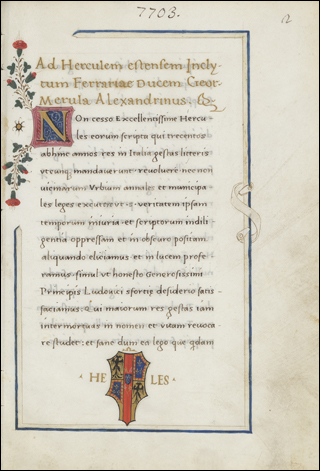 7703.
2
Ad Herculem estensem Incly
tum Ferrariae Ducem Geor.
Merula Alexandrinus. &
NOn cesso Excellentissime Hercu
les eorum scripta qui trecentos
abhinc annos res in Italia gestas litteris
utcunq; mandauerunt reuoluere: nec non
uicinarum Urbium annales et municipa
les leges excutere ut & ueritatem ipsam
temporum iniuria et scriptorum indili
gentia oppressam et in obscuro positam
aliquando eliciamus et in lucem profe
ramus: simul ut honesto Generosissimi
Principis Ludouici sfortie desiderio satis
faciamus: Qui maiorum res gestas iam
intermortuas in nomen et uitam reuoca
re studet: et sane dum ea lego que qdam
HE LES